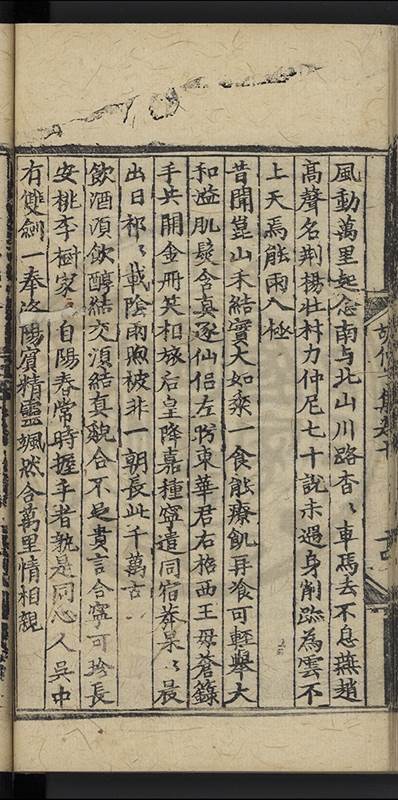 風動萬里起念南与北山川路杳〻車馬去不息燕趙
高聲名荆楊壯材力仲尼七十說未遇身削跡為雲不
上天焉能雨八極
昔聞崑山禾結實大如桼一食能療飢再飡可輕舉大
和溢肌髮含真逐仙侣左防東華君右格西王母蒼籙
手共開金冊笑相旅后皇降嘉種寧遣同宿莽杲〻晨
出日祁〻載陰雨煦被非一朝長此千萬古
飲酒湏飲醇結交湏結真貌合不足貴言合寧可珍長
安桃李樹家〻自陽春常時握手者孰是同心人吳中
有雙劍一奉洛陽賓精靈颯然合萬里情相親